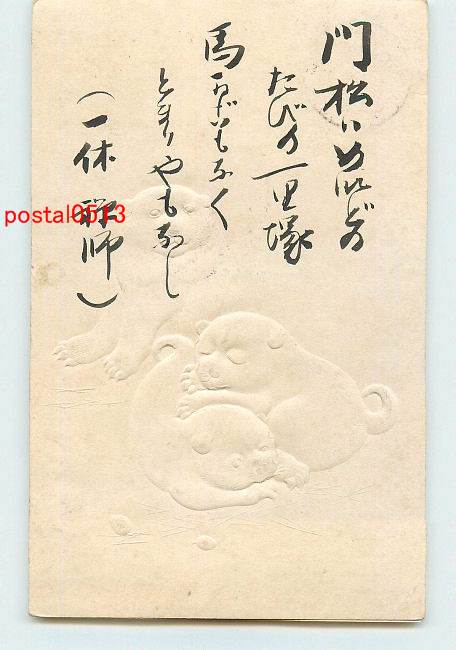 門松はめいどの
たびの一里塚
馬かごもなく
とまりやもなし
（一休禅師）
postal0513